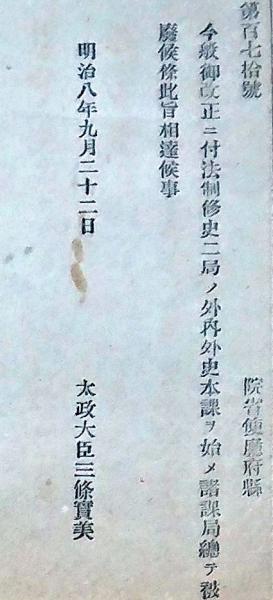 第百七拾號
院省使廳府縣
今般御改正ニ付法制修史二局ノ外內外史本課ヲ始メ諸課局總テ被
廢候條此旨相達候事
明治八年九月二十二日
太政大臣三條實美